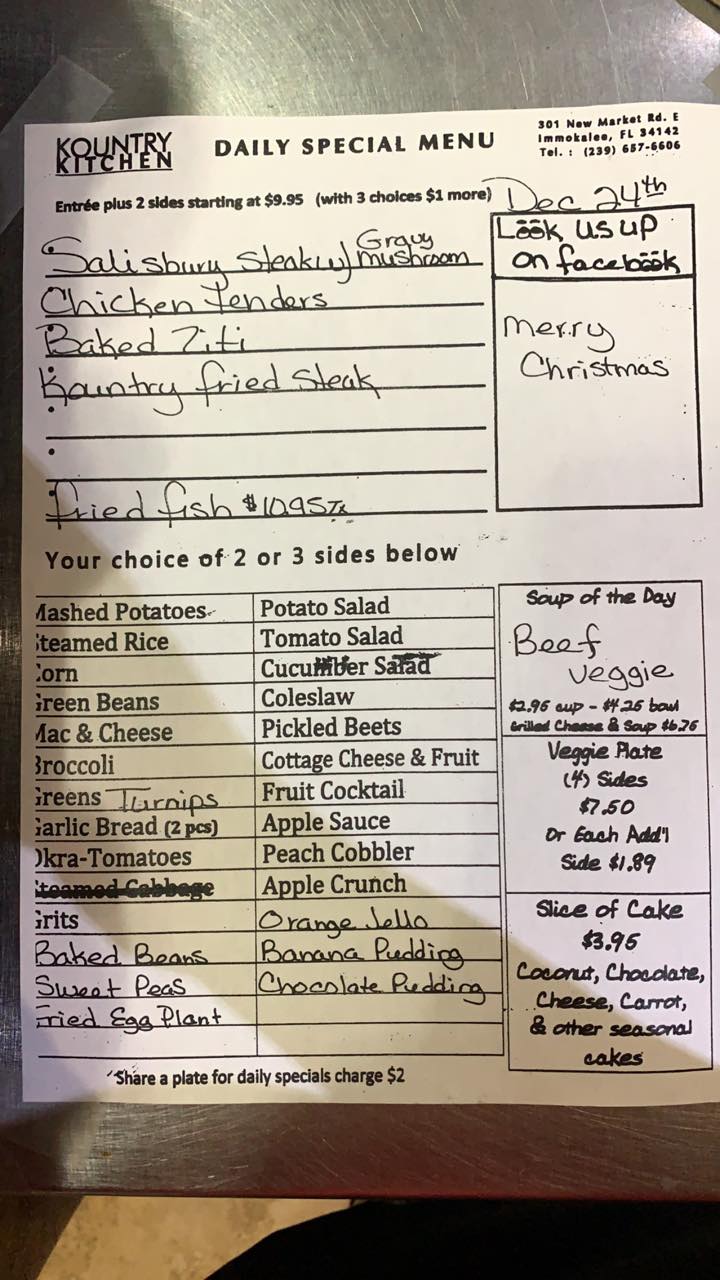 KOUNTRY
KITCHEN
DAILY SPECIAL MENU
301 New Market Rd. E
Immokalee, FL 34142
Tel. : (239) 657-6606
Entrée plus 2 sides starting at $9.95 (with 3 choices $1 more)
Dec 24th
Salisbury Steak w/ Gravy
mushroom
Chicken Tenders
Baked Ziti
Kountry fried Steak
fried fish $10.95
Look us up
on facebook
Merry
Christmas
Your choice of 2 or 3 sides below
Mashed Potatoes
Steamed Rice
Corn
Green Beans
Mac & Cheese
Broccoli
Greens Turnips
Garlic Bread (2 pcs)
Okra-Tomatoes
Steamed Cabbage
Grits
Baked Beans
Sweet Peas
Fried Egg Plant
Potato Salad
Tomato Salad
Cucumber Salad
Coleslaw
Pickled Beets
Cottage Cheese & Fruit
Fruit Cocktail
Apple Sauce
Peach Cobbler
Apple Crunch
Orange Jello
Banana Pudding
Chocolate Pudding
Soup of the Day
Beef
Veggie
$2.95 cup - $4.25 bowl
Grilled Cheese & Soup $6.75
Veggie Plate
(4) Sides
$7.50
Or Each Add'l
Side $1.89
Slice of Cake
$3.95
Coconut, Chocolate,
Cheese, Carrot,
& other seasonal
cakes
Share a plate for daily specials charge $2